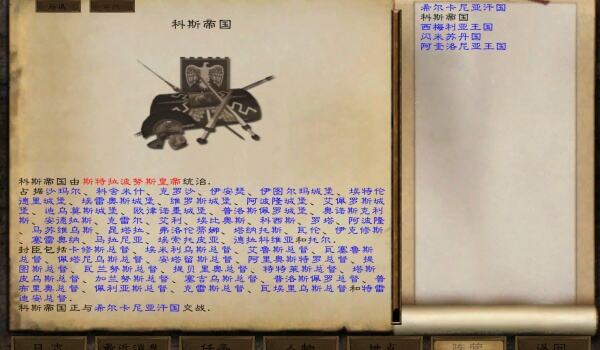 科斯帝国
科斯帝国由斯特拉波努斯皇帝统治.
占据沙玛尔、科舍米什、克罗沙、伊安瑟、伊图尔玛城堡、埃特伦
德里城堡、埃雷奥斯城堡、维罗斯城堡、阿波隆城堡、艾佩罗斯城
堡、迪乌莫斯城堡、欧律诺墨城堡、普洛斯佩罗城堡、奥诺斯克利
斯、安德拉斯、克雷尔、艾利、埃比奥斯、科西斯、罗塔、阿波隆
、马苏维乌斯、昆塔拉、弗洛伦蒂娜、塔纳托斯、瓦伦、伊克修斯
、塞雷奥纳、马拉尼亚、埃索托皮亚、德拉科维亚和托尔.
封臣包括卡修斯总督、埃米利乌斯总督、艾鲁斯总督、瓦塞鲁斯
总督、佩塔尼乌斯总督、安塔留斯总督、阿里奥斯特罗总督、提
图斯总督、瓦兰努斯总督、提贝里奥总督、特特莱斯总督、塔斯
皮乌斯总督、加兰努斯总督、塞古乌斯总督、普洛斯佩罗总督、普
布里奥总督、佩利亚斯总督、克雷斯总督、瓦埃里乌斯总督和特雷
迪安总督.
科斯帝国正与希尔卡尼亚汗国交战.
希尔卡尼亚汗国
科斯帝国
西梅利亚王国
闪米苏丹国
阿奎洛尼亚王国
日志
任务
人物
地点
阵营
返回